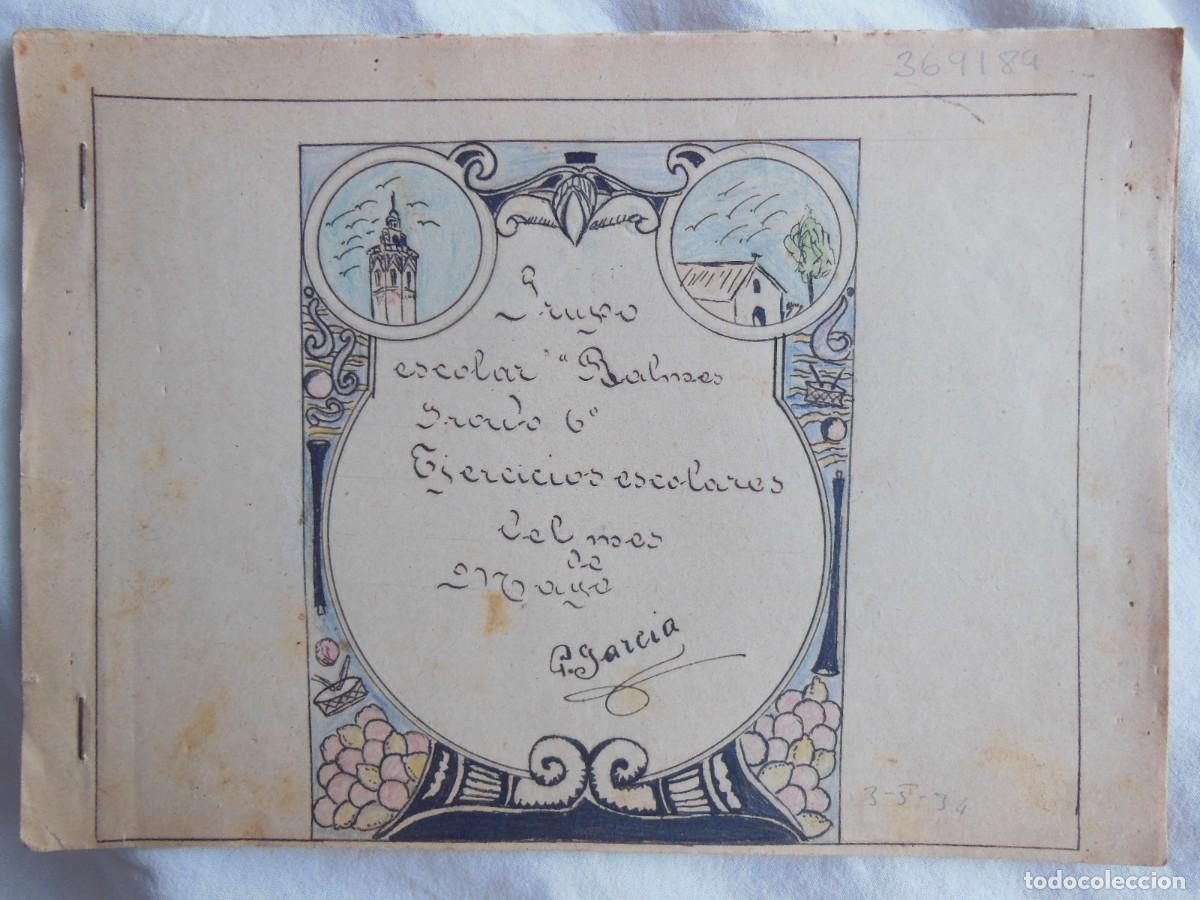 369189
Grupo
escolar "Balmes
Grado 6º
Ejercicios escolares
del mes
de
Mayo
G. Garcia
3-5-34
todocoleccion